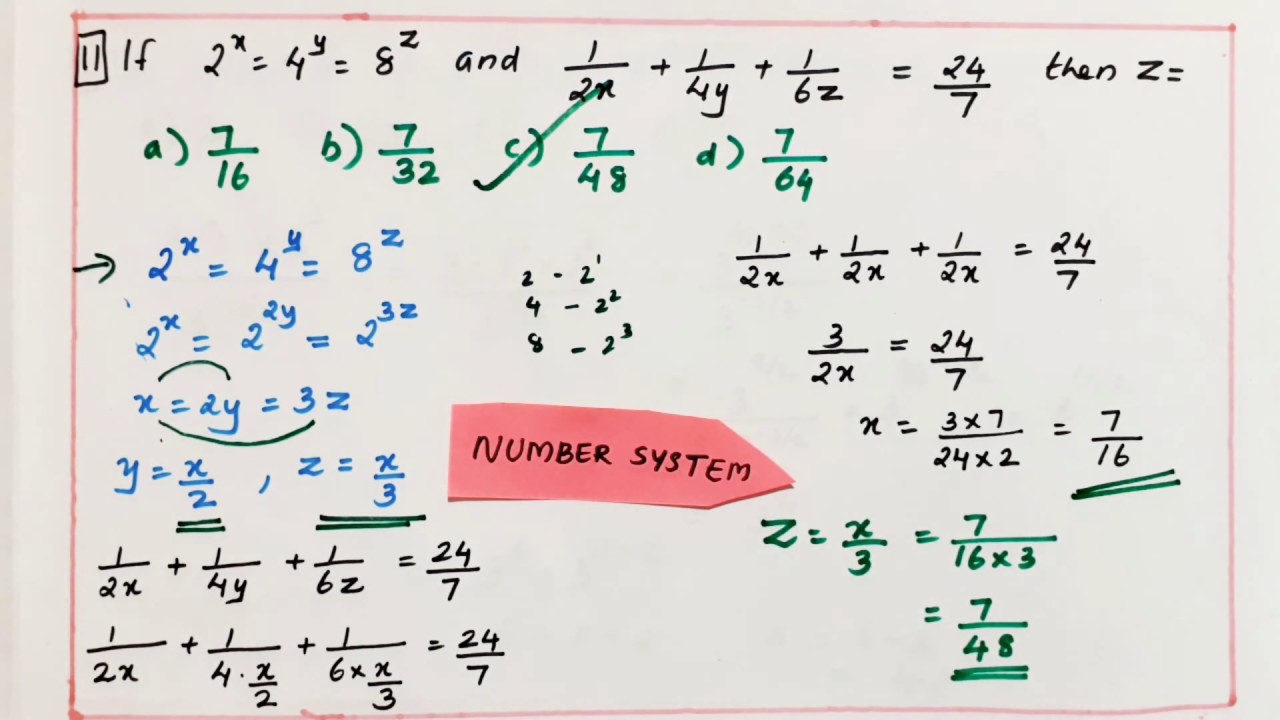 11 If 2^x = 4^y = 8^z and 1/2x + 1/4y + 1/6z = 24/7 then z =
a) 7/16 b) 7/32 c) 7/48 d) 7/64
→ 2^x = 4^y = 8^z
2^x = 2^2y = 2^3z
x = 2y = 3z
y = x/2 , z = x/3
1/2x + 1/4y + 1/6z = 24/7
1/2x + 1/4·x/2 + 1/6×x/3 = 24/7
2 - 2^1
4 - 2^2
8 - 2^3
NUMBER SYSTEM
1/2x + 1/2x + 1/2x = 24/7
3/2x = 24/7
x = 3×7/24×2 = 7/16
z = x/3 = 7/16×3
= 7/48